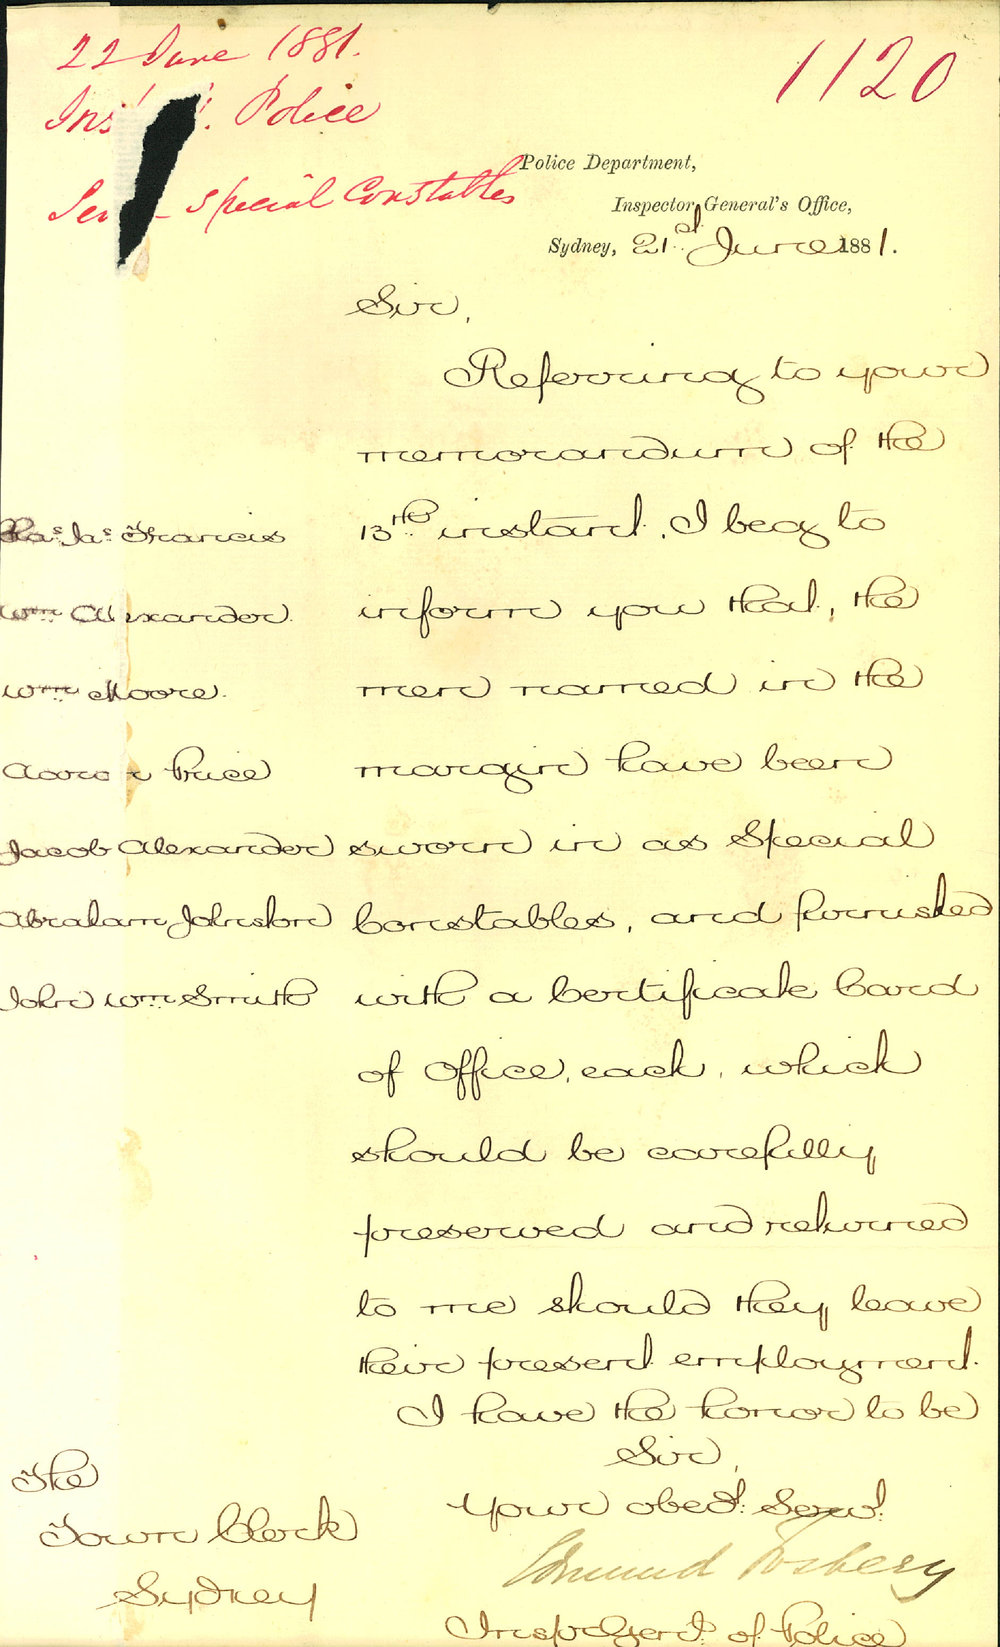 22 June 1881.
1120
Police
special Constables
Police Department,
Inspector General's Office,
Sydney, 21st June 1881.
Sir,
Referring to your
memorandum of the
13th instant, I beg to
inform you that, the
men named in the
margin have been
sworn in as Special
Constables, and furnished
with a Certificate Card
of Office, each, which
should be carefully
preserved and returned
to me should they leave
their present employment.
I have the honor to be
Sir,
Your obedt. Servt.
Edmund Fosbery
Inspr. Genl. of Police
Jas. Francis
Wm Alexander.
Wm Moore.
Aaron Price
Jacob Alexander
Abraham Johnston
John Wm Smith
The
Town Clerk
Sydney